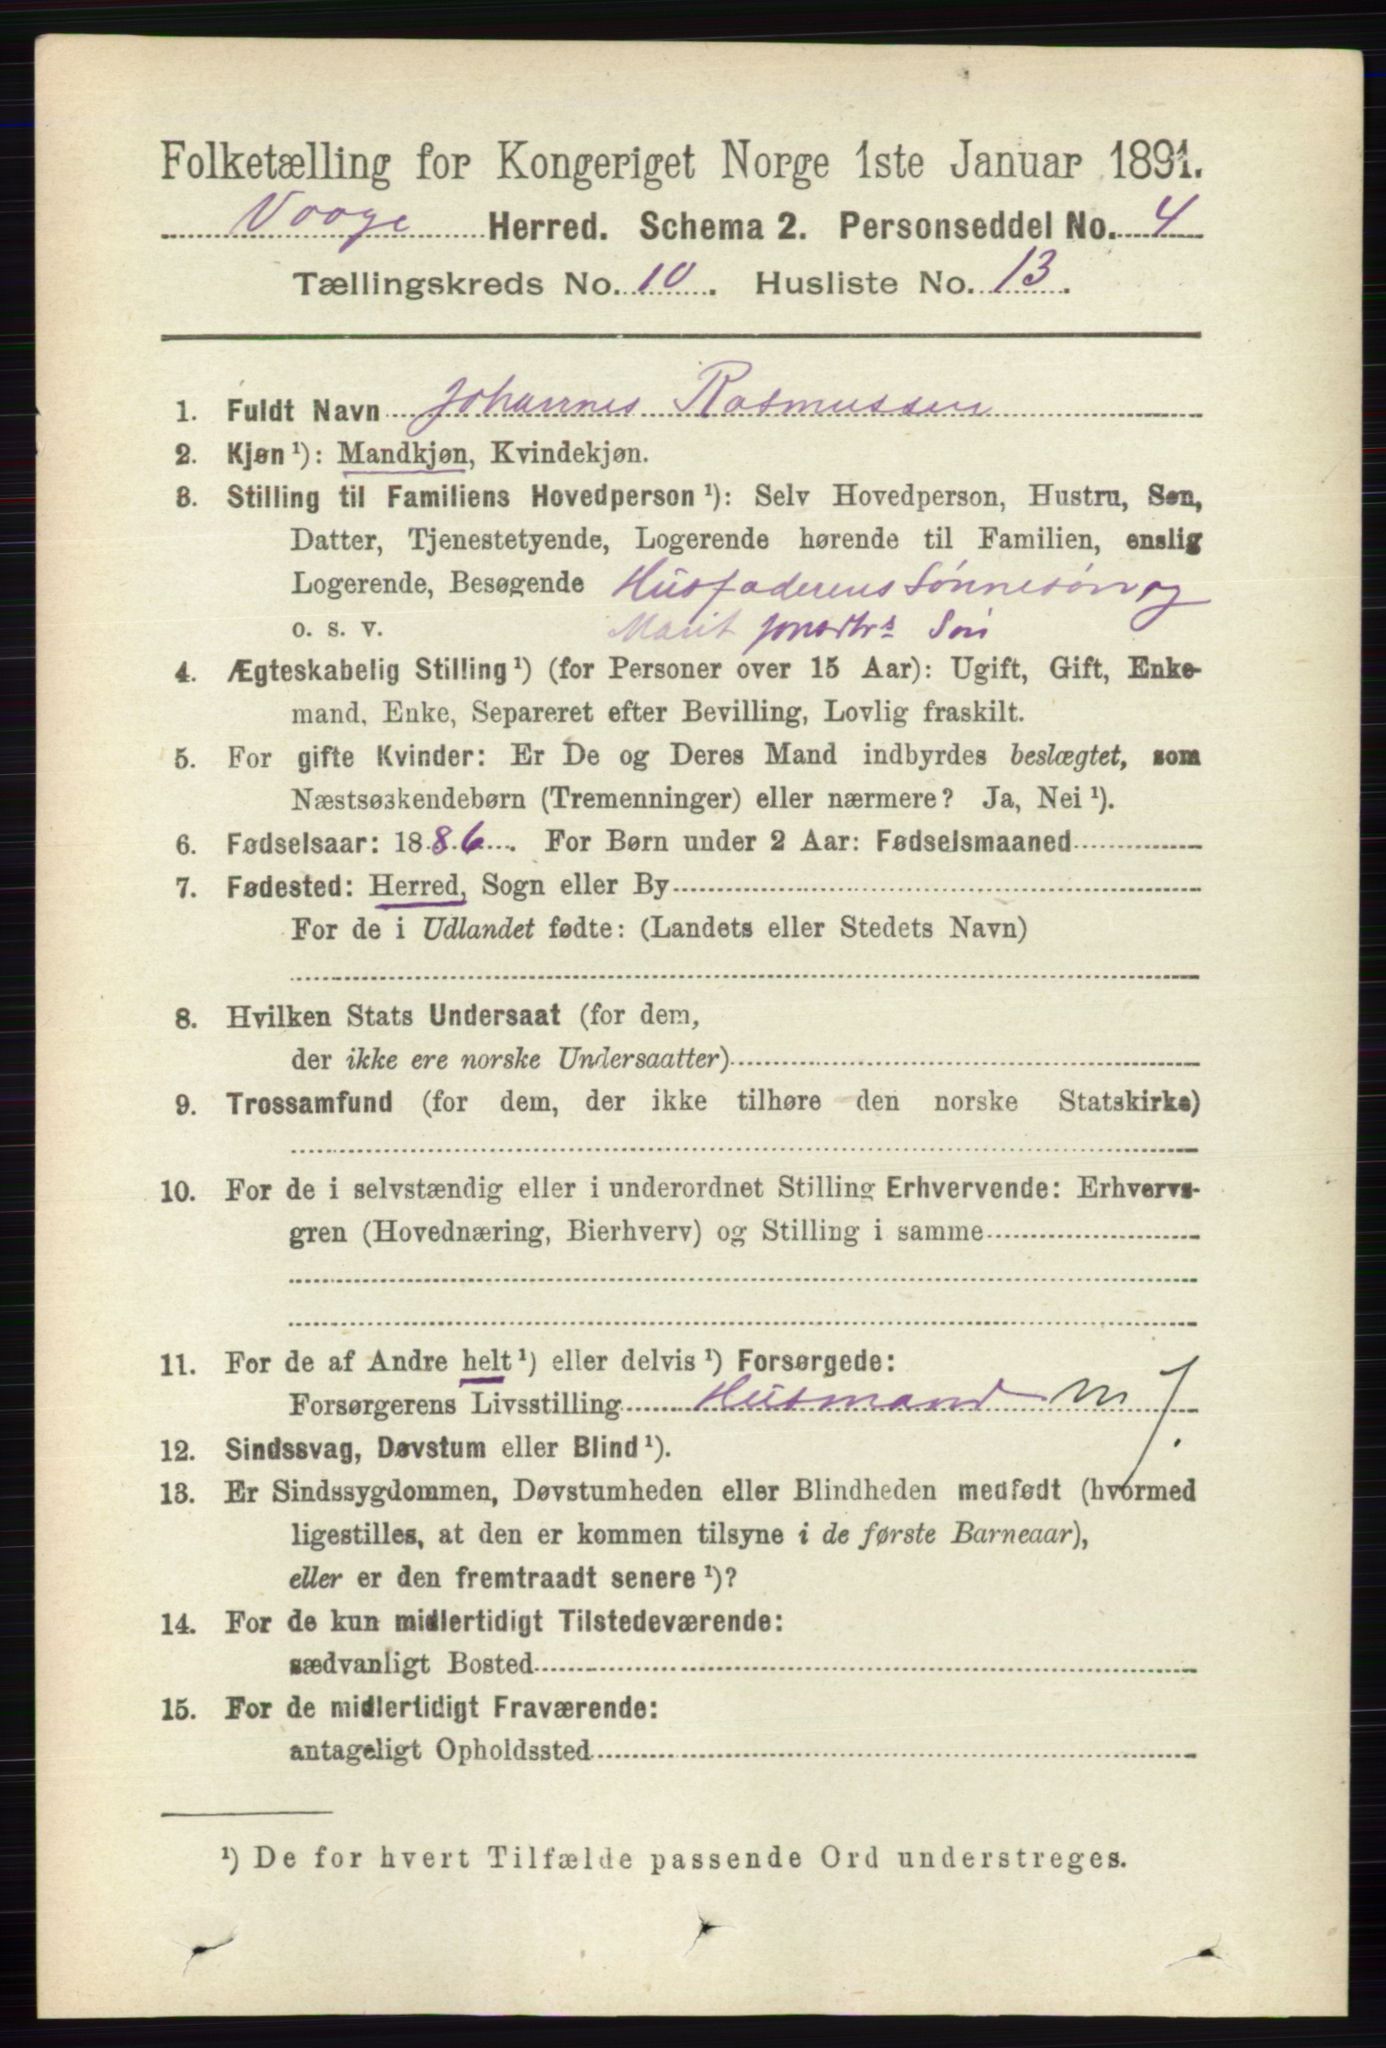 Folketælling for Kongeriget Norge 1ste Januar 1891.
Vaage Herred. Schema 2. Personseddel No. 4
Tællingskreds No. 10. Husliste No. 13.
1. Fuldt Navn Johannes Rasmussen
2. Kjøn ¹): Mandkjøn, Kvindekjøn.
3. Stilling til Familiens Hovedperson ¹): Selv Hovedperson, Hustru, Søn,
Datter, Tjenestetyende, Logerende hørende til Familien, enslig
Logerende, Besøgende Husfaderens Sønnesøn og
o. s. v. Marit Jonsdtrs Søn
4. Ægteskabelig Stilling ¹) (for Personer over 15 Aar): Ugift, Gift, Enke-
mand, Enke, Separeret efter Bevilling, Lovlig fraskilt.
5. For gifte Kvinder: Er De og Deres Mand indbyrdes beslægtet, som
Næstsøskendebørn (Tremenninger) eller nærmere? Ja, Nei ¹).
6. Fødselsaar: 1886. For Børn under 2 Aar: Fødselsmaaned
7. Fødested: Herred, Sogn eller By
For de i Udlandet fødte: (Landets eller Stedets Navn)
8. Hvilken Stats Undersaat (for dem,
der ikke ere norske Undersaatter)
9. Trossamfund (for dem, der ikke tilhøre den norske Statskirke)
10. For de i selvstændig eller i underordnet Stilling Erhvervende: Erhvervs-
gren (Hovednæring, Bierhverv) og Stilling i samme
11. For de af Andre helt ¹) eller delvis ¹) Forsørgede:
Forsørgerens Livsstilling Husmand m J.
12. Sindssvag, Døvstum eller Blind ¹).
13. Er Sindssygdommen, Døvstumheden eller Blindheden medfødt (hvormed
ligestilles, at den er kommen tilsyne i de første Barneaar),
eller er den fremtraadt senere ¹)?
14. For de kun midlertidigt Tilstedeværende:
sædvanligt Bosted
15. For de midlertidigt Fraværende:
antageligt Opholdssted
¹) De for hvert Tilfælde passende Ord understreges.